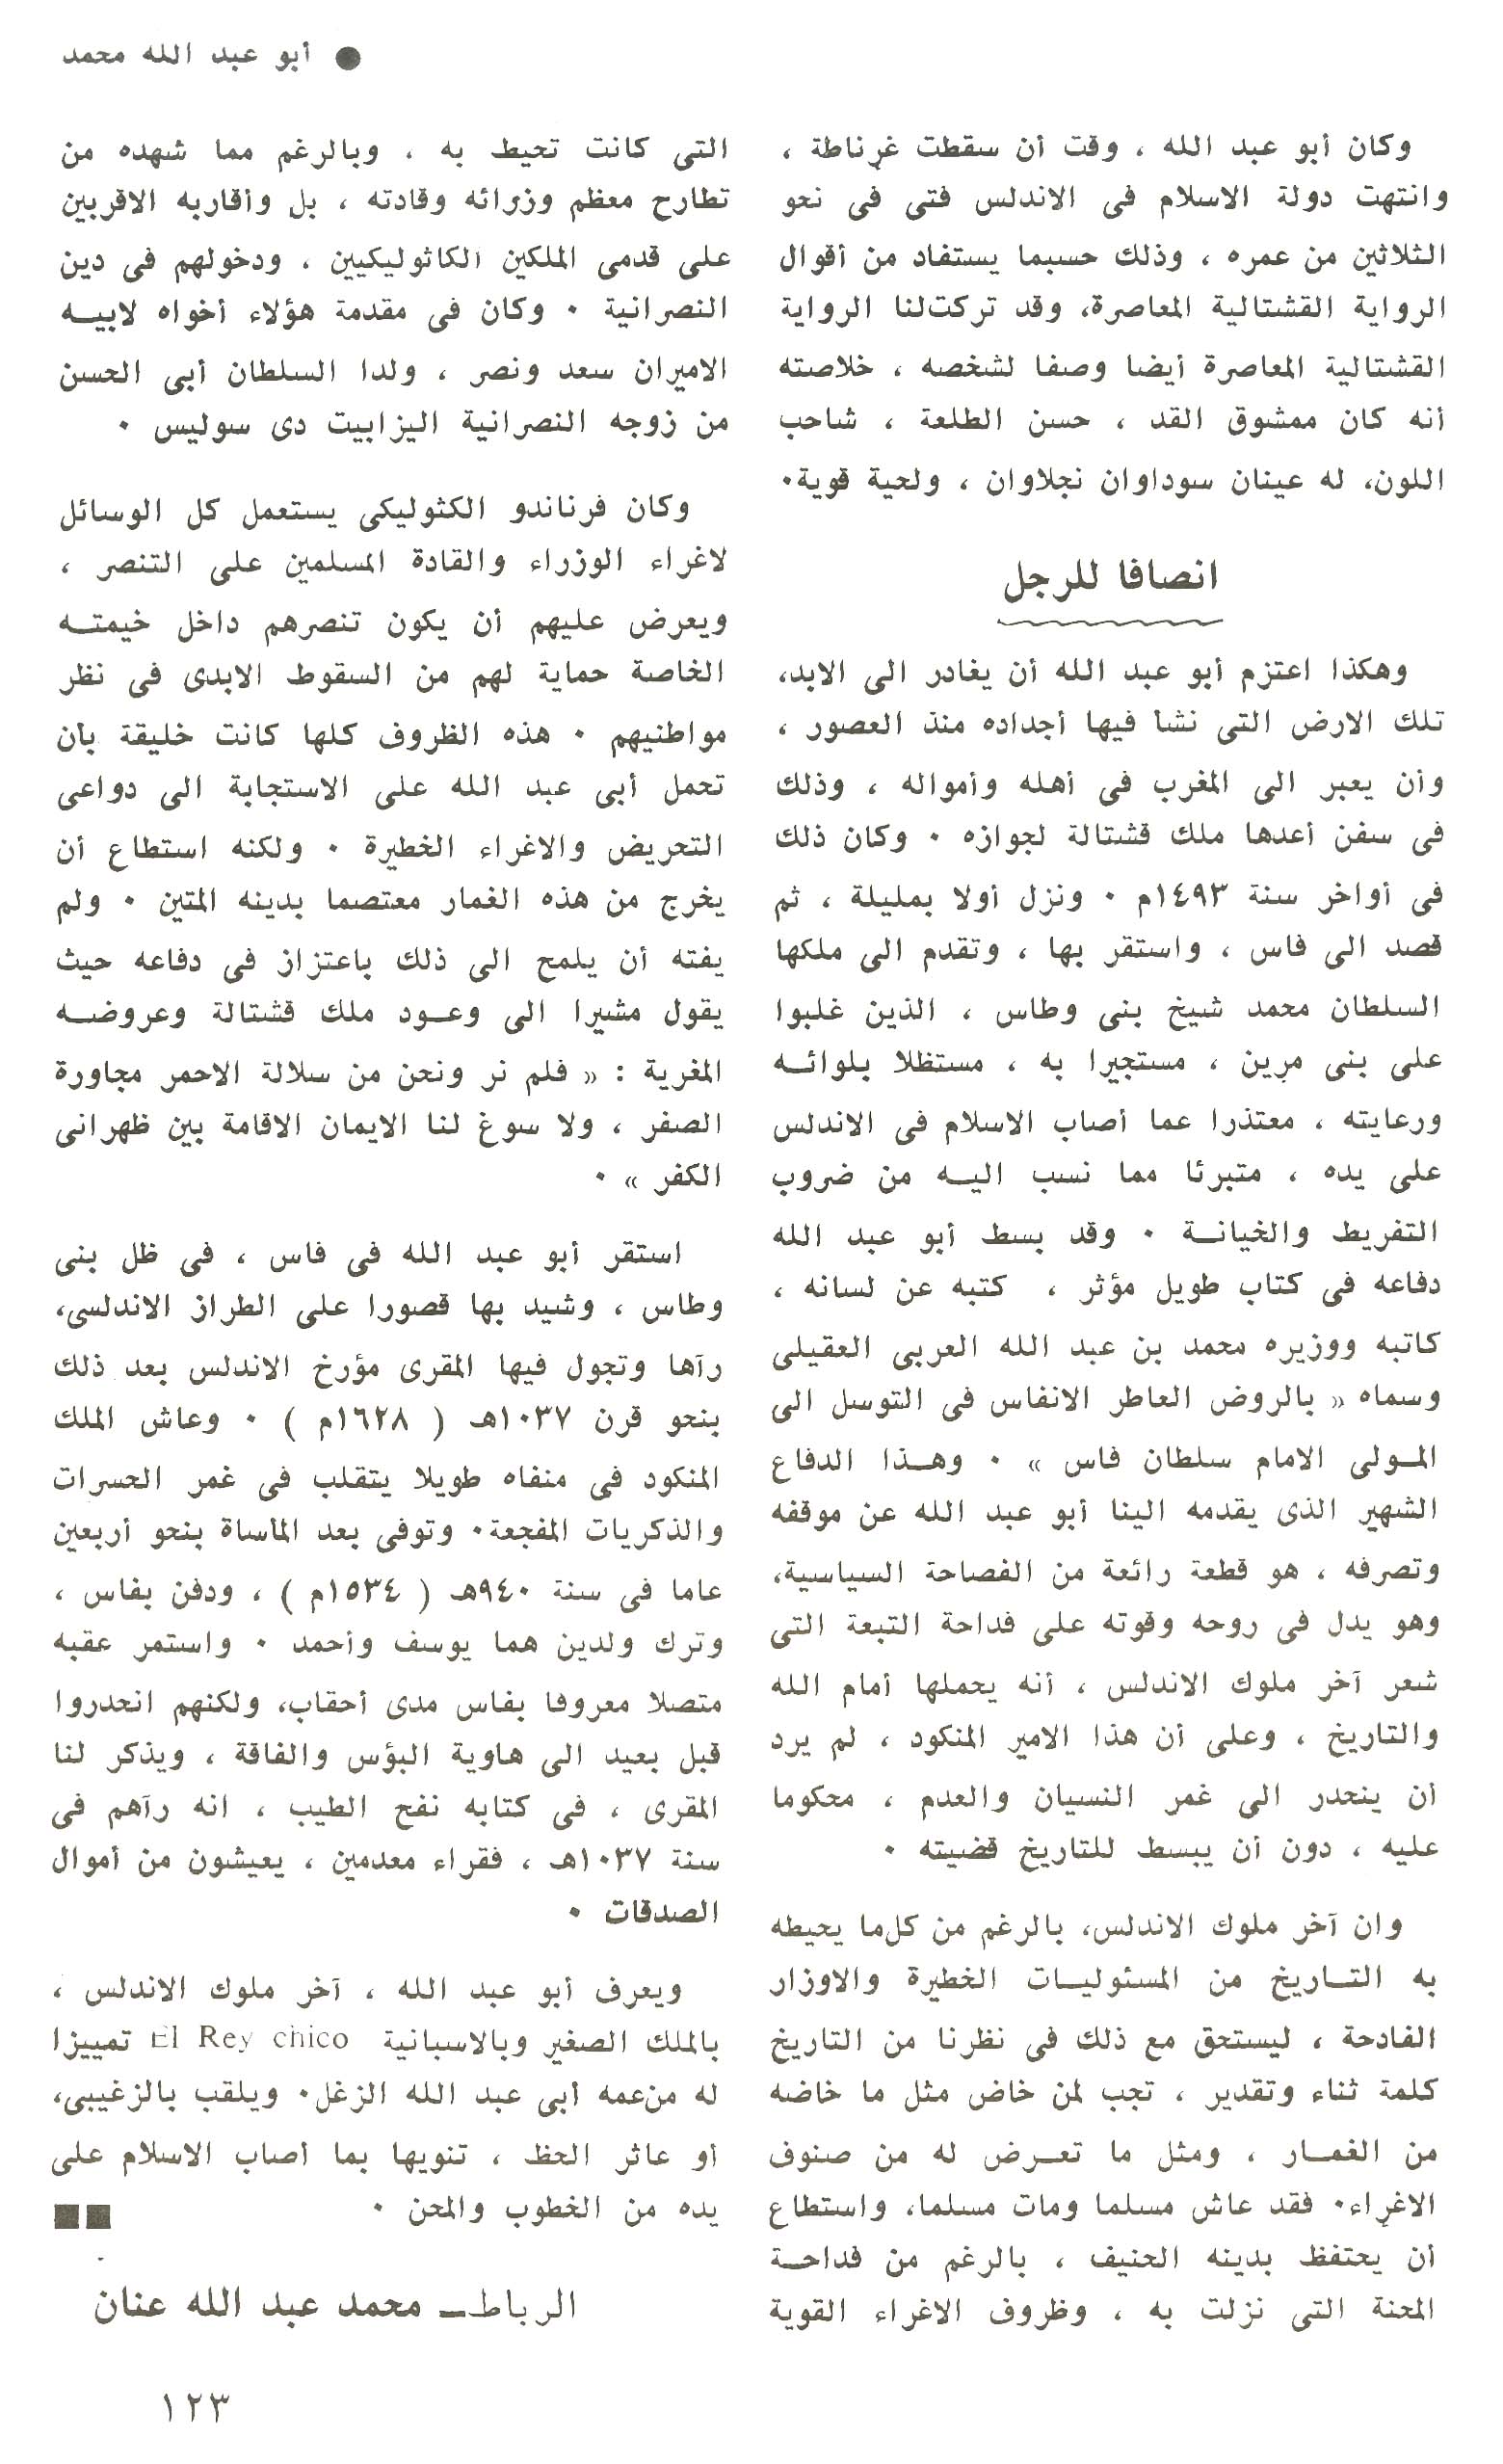 ● أبو عبد الله محمد
وكان أبو عبد الله ، وقت أن سقطت غرناطة ،
وانتهت دولة الاسلام فى الاندلس فتى فى نحو
الثلاثين من عمره ، وذلك حسبما يستفاد من أقوال
الرواية القشتالية المعاصرة، وقد تركت لنا الرواية
القشتالية المعاصرة أيضا وصفا لشخصه ، خلاصته
أنه كان ممشوق القد ، حسن الطلعة ، شاحب
اللون، له عينان سوداوان نجلاوان ، ولحية قوية٠
انصافا للرجل
وهكذا اعتزم أبو عبد الله أن يغادر الى الابد،
تلك الارض التى نشأ فيها أجداده منذ العصور ،
وأن يعبر الى المغرب فى أهله وأمواله ، وذلك
فى سفن أعدها ملك قشتالة لجوازه ٠ وكان ذلك
فى أواخر سنة ١٤٩٣م ٠ ونزل أولا بمليلة ، ثم
قصد الى فاس ، واستقر بها ، وتقدم الى ملكها
السلطان محمد شيخ بنى وطاس ، الذين غلبوا
على بنى مرين ، مستجيرا به ، مستظلا بلوائـه
ورعايته ، معتذرا عما أصاب الاسلام فى الاندلس
على يده ، متبرئا مما نسب اليـه من ضروب
التفريط والخيانـة ٠ وقد بسط أبو عبد الله
دفاعه فى كتاب طويل مؤثر ، كتبه عن لسانه ،
كاتبه ووزيره محمد بن عبد الله العربى العقيلى
وسماه « بالروض العاطر الانفاس فى التوسل الى
المـولى الامام سلطان فاس » ٠ وهـذا الدفاع
الشهير الذى يقدمه الينا أبو عبد الله عن موقفه
وتصرفه ، هو قطعة رائعة من الفصاحة السياسية،
وهو يدل فى روحه وقوته على فداحة التبعة التى
شعر آخر ملوك الاندلس ، أنه يحملها أمام الله
والتاريخ ، وعلى أن هذا الامير المنكود ، لم يرد
أن ينحدر الى غمر النسيان والعدم ، محكوما
عليه ، دون أن يبسط للتاريخ قضيته ٠
وان آخر ملوك الاندلس، بالرغم من كل ما يحيطه
به التـاريخ من المسئوليـات الخطيرة والاوزار
الفادحة ، ليستحق مع ذلك فى نظرنا من التاريخ
كلمة ثناء وتقدير ، تجب لمن خاض مثل ما خاضه
من الغمـار ، ومثل ما تعـرض له من صنوف
الاغراء٠ فقد عاش مسلما ومات مسلما، واستطاع
أن يحتفظ بدينه الحنيف ، بالرغم من فداحـة
المحنة التى نزلت به ، وظروف الاغراء القوية
التى كانت تحيط به ، وبالرغم مما شهده من
تطارح معظم وزرائه وقادته ، بل وأقاربه الاقربين
على قدمى الملكين الكاثوليكيين ، ودخولهم فى دين
النصرانية ٠ وكان فى مقدمة هؤلاء أخواه لابيـه
الاميران سعد ونصر ، ولدا السلطان أبى الحسن
من زوجه النصرانية اليزابيت دى سوليس ٠
وكان فرناندو الكثوليكى يستعمل كل الوسائل
لاغراء الوزراء والقادة المسلمين على التنصر ،
ويعرض عليهم أن يكون تنصرهم داخل خيمتـه
الخاصة حماية لهم من السقوط الابدى فى نظر
مواطنيهم ٠ هذه الظروف كلها كانت خليقة بأن
تحمل أبى عبد الله على الاستجابة الى دواعى
التحريض والاغراء الخطيرة ٠ ولكنه استطاع أن
يخرج من هذه الغمار معتصما بدينه المتين ٠ ولم
يفته أن يلمح الى ذلك باعتزاز فى دفاعه حيث
يقول مشيرا الى وعـود ملك قشتالة وعروضـه
المغرية : « فلم نر ونحن من سلالة الاحمر مجاورة
الصفر ، ولا سوغ لنا الايمان الاقامة بين ظهرانى
الكفر » ٠
استقر أبو عبد الله فى فاس ، فى ظل بنى
وطاس ، وشيد بها قصورا على الطراز الاندلسى،
رآها وتجول فيها المقرى مؤرخ الاندلس بعد ذلك
بنحو قرن ١٠٣٧هـ ( ١٦٢٨م ) ٠ وعاش الملك
المنكود فى منفاه طويلا يتقلب فى غمر الحسرات
والذكريات المفجعة٠ وتوفى بعد المأساة بنحو أربعين
عاما فى سنة ٩٤٠هـ ( ١٥٣٤م ) ، ودفن بفاس ،
وترك ولدين هما يوسف وأحمد ٠ واستمر عقبه
متصلا معروفا بفاس مدى أحقاب، ولكنهم انحدروا
قبل بعيد الى هاوية البؤس والفاقة ، ويذكر لنا
المقرى ، فى كتابه نفح الطيب ، انه رآهم فى
سنة ١٠٣٧هـ ، فقراء معدمين ، يعيشون من أموال
الصدقات ٠
ويعرف أبو عبد الله ، آخر ملوك الاندلس ،
بالملك الصغير وبالاسبانية El Rey chico تمييزا
له من عمه أبى عبد الله الزغل٠ ويلقب بالزغيبى،
أو عاثر الحظ ، تنويها بما أصاب الاسلام على
يده من الخطوب والمحن ٠
الرباط ـ محمد عبد الله عنان
١٢٣